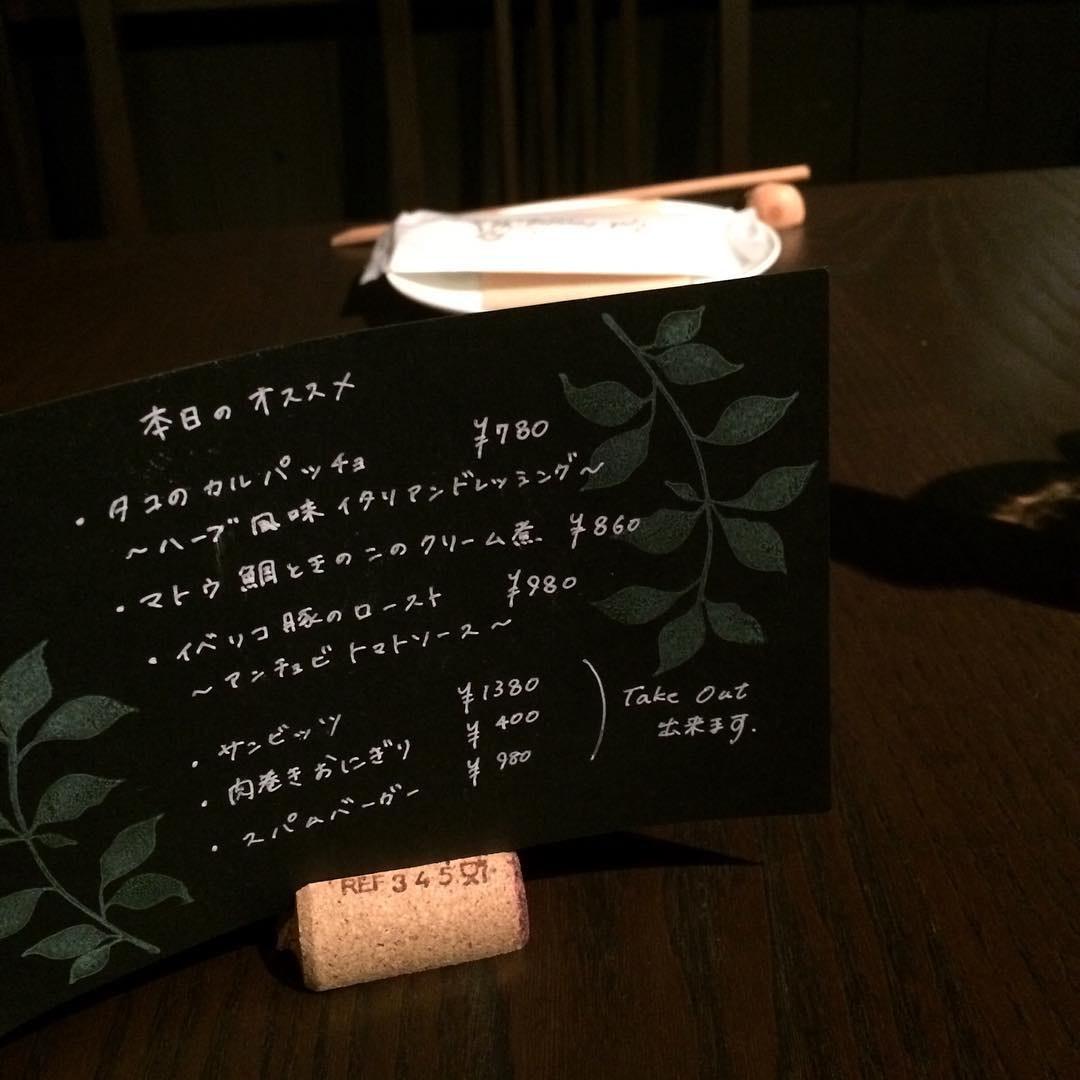 本日のオススメ
・タコのカルパッチョ ¥780
～ハーブ風味イタリアンドレッシング～
・マトウ鯛ときのこのクリーム煮 ¥860
・イベリコ豚のロースト ¥980
～アンチョビトマトソース～
・サンビッツ ¥1380
・肉巻きおにぎり ¥400
・スパムバーガー ¥980
Take Out
出来ます.
REF 345